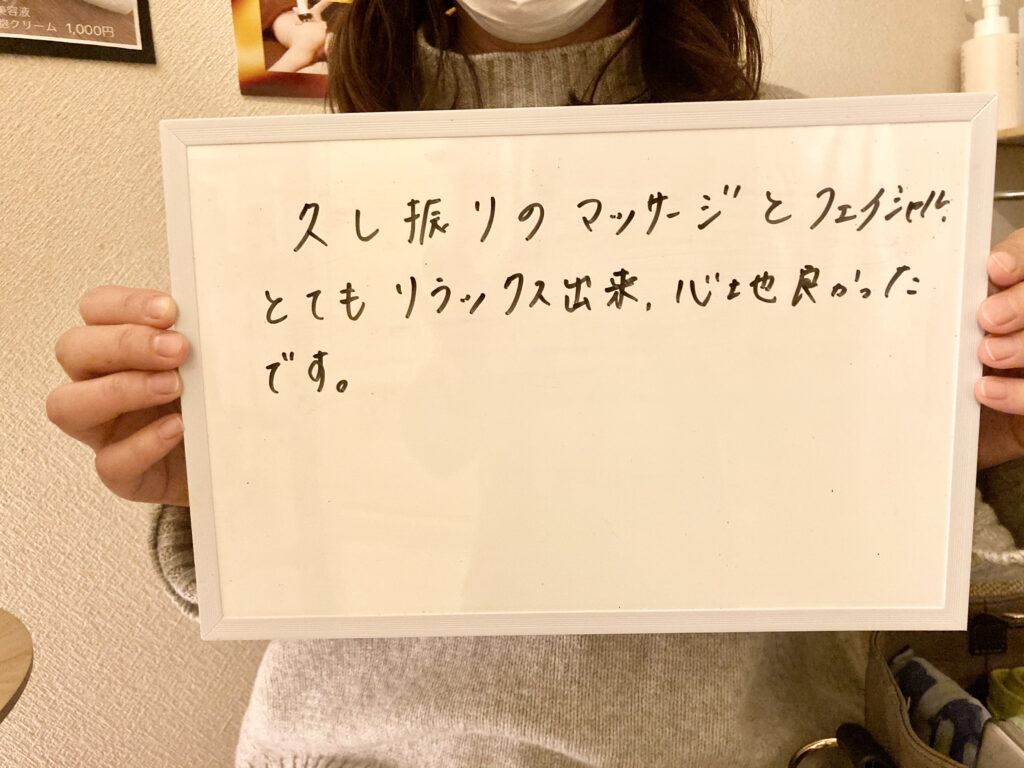 美容液
泡クリーム 1,000円
久し振りのマッサージとフェイシャル、
とてもリラックス出来、心地良かった
です。